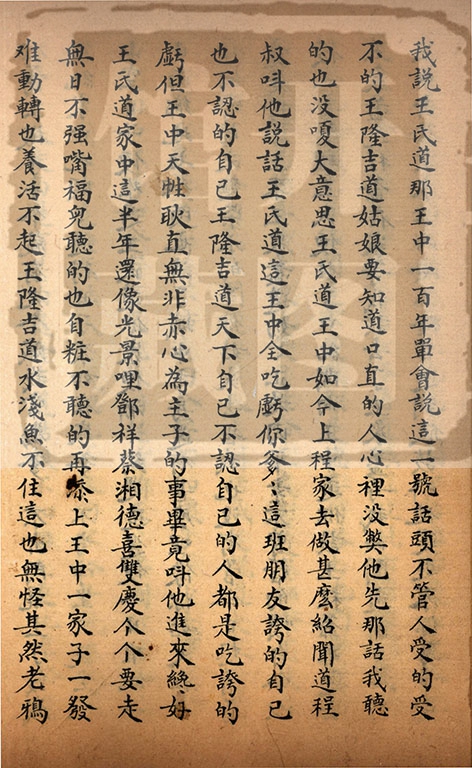 我説王氏道那王中一百年單會説這一號話頭不管人受的受
不的王隆吉道姑娘要知道口直的人心裡没獘他先那話我聽
的也没嗄大意思王氏道王中如今上程家去做甚麽紹聞道程
叔呌他説話王氏道這王中全吃虧你爹〻這班朋友誇的自己
也不認的自己王隆吉道天下自己不認自己的人都是吃誇的
虧但王中天性耿直無非赤心為主子的事畢竟呌他進來纔好
王氏道家中這半年還像光景哩鄧祥蔡湘德喜雙慶个个要走
無日不强嘴福兒聽的也自粧不聽的再叅上王中一家子一發
难動轉也養活不起王隆吉道水淺魚不住這也無怪其然老鴉